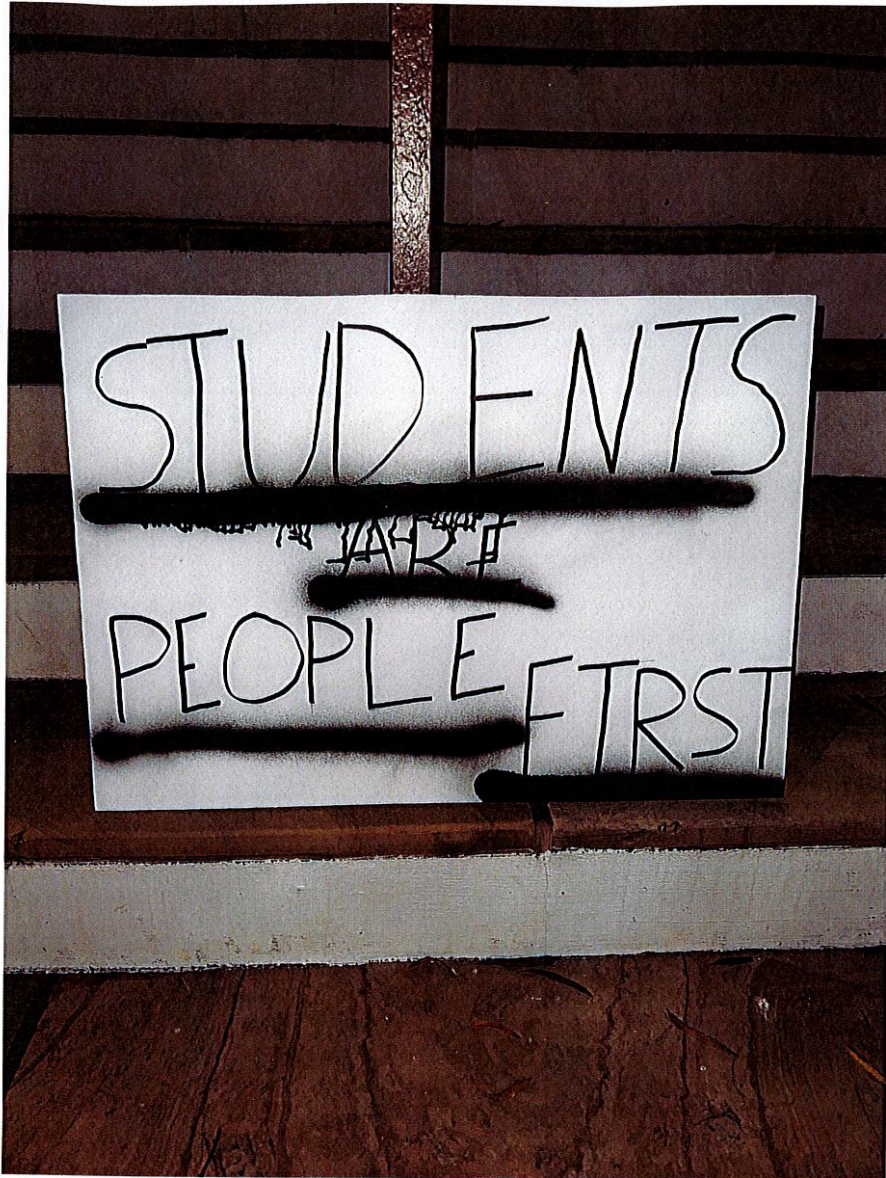 STUDENTS
ARE
PEOPLE
FIRST